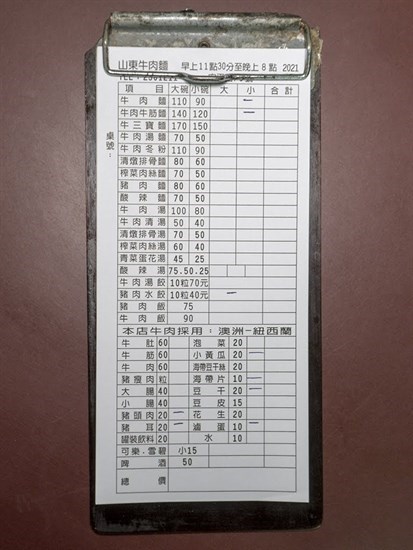 山東牛肉麵 早上11點30分至晚上8點 2021
桌號:
項目 大碗 小碗 大 小 合計
牛肉麵 110 90 一
牛肉牛筋麵 140 120 一
牛三寶麵 170 150
牛肉湯麵 70 50
牛肉冬粉 110 90
清燉排骨麵 80 60
榨菜肉絲麵 70 50
豬肉麵 80 60
酸辣麵 70 50
牛肉湯 100 80
牛肉清湯 50 40
清燉排骨湯 70 50
榨菜肉絲湯 60 40
青菜蛋花湯 45 25
酸辣湯 75.50.25
牛肉湯餃 10粒70元
豬肉水餃 10粒40元 一
豬肉飯 75
牛肉飯 90
本店牛肉採用:澳洲-紐西蘭
牛肚 60 泡菜 20
牛筋 60 小黃瓜 20 一
牛肉 60 海帶豆干絲 20
豬瘦肉粒 海帶片 10 一
大腸 40 豆干 20 一
小腸 40 豆皮 15
豬頭肉 20 一 花生 20
豬耳 20 一 滷蛋 10 一
罐裝飲料 20 水 10
可樂.雪碧 小15
啤酒 50
總價